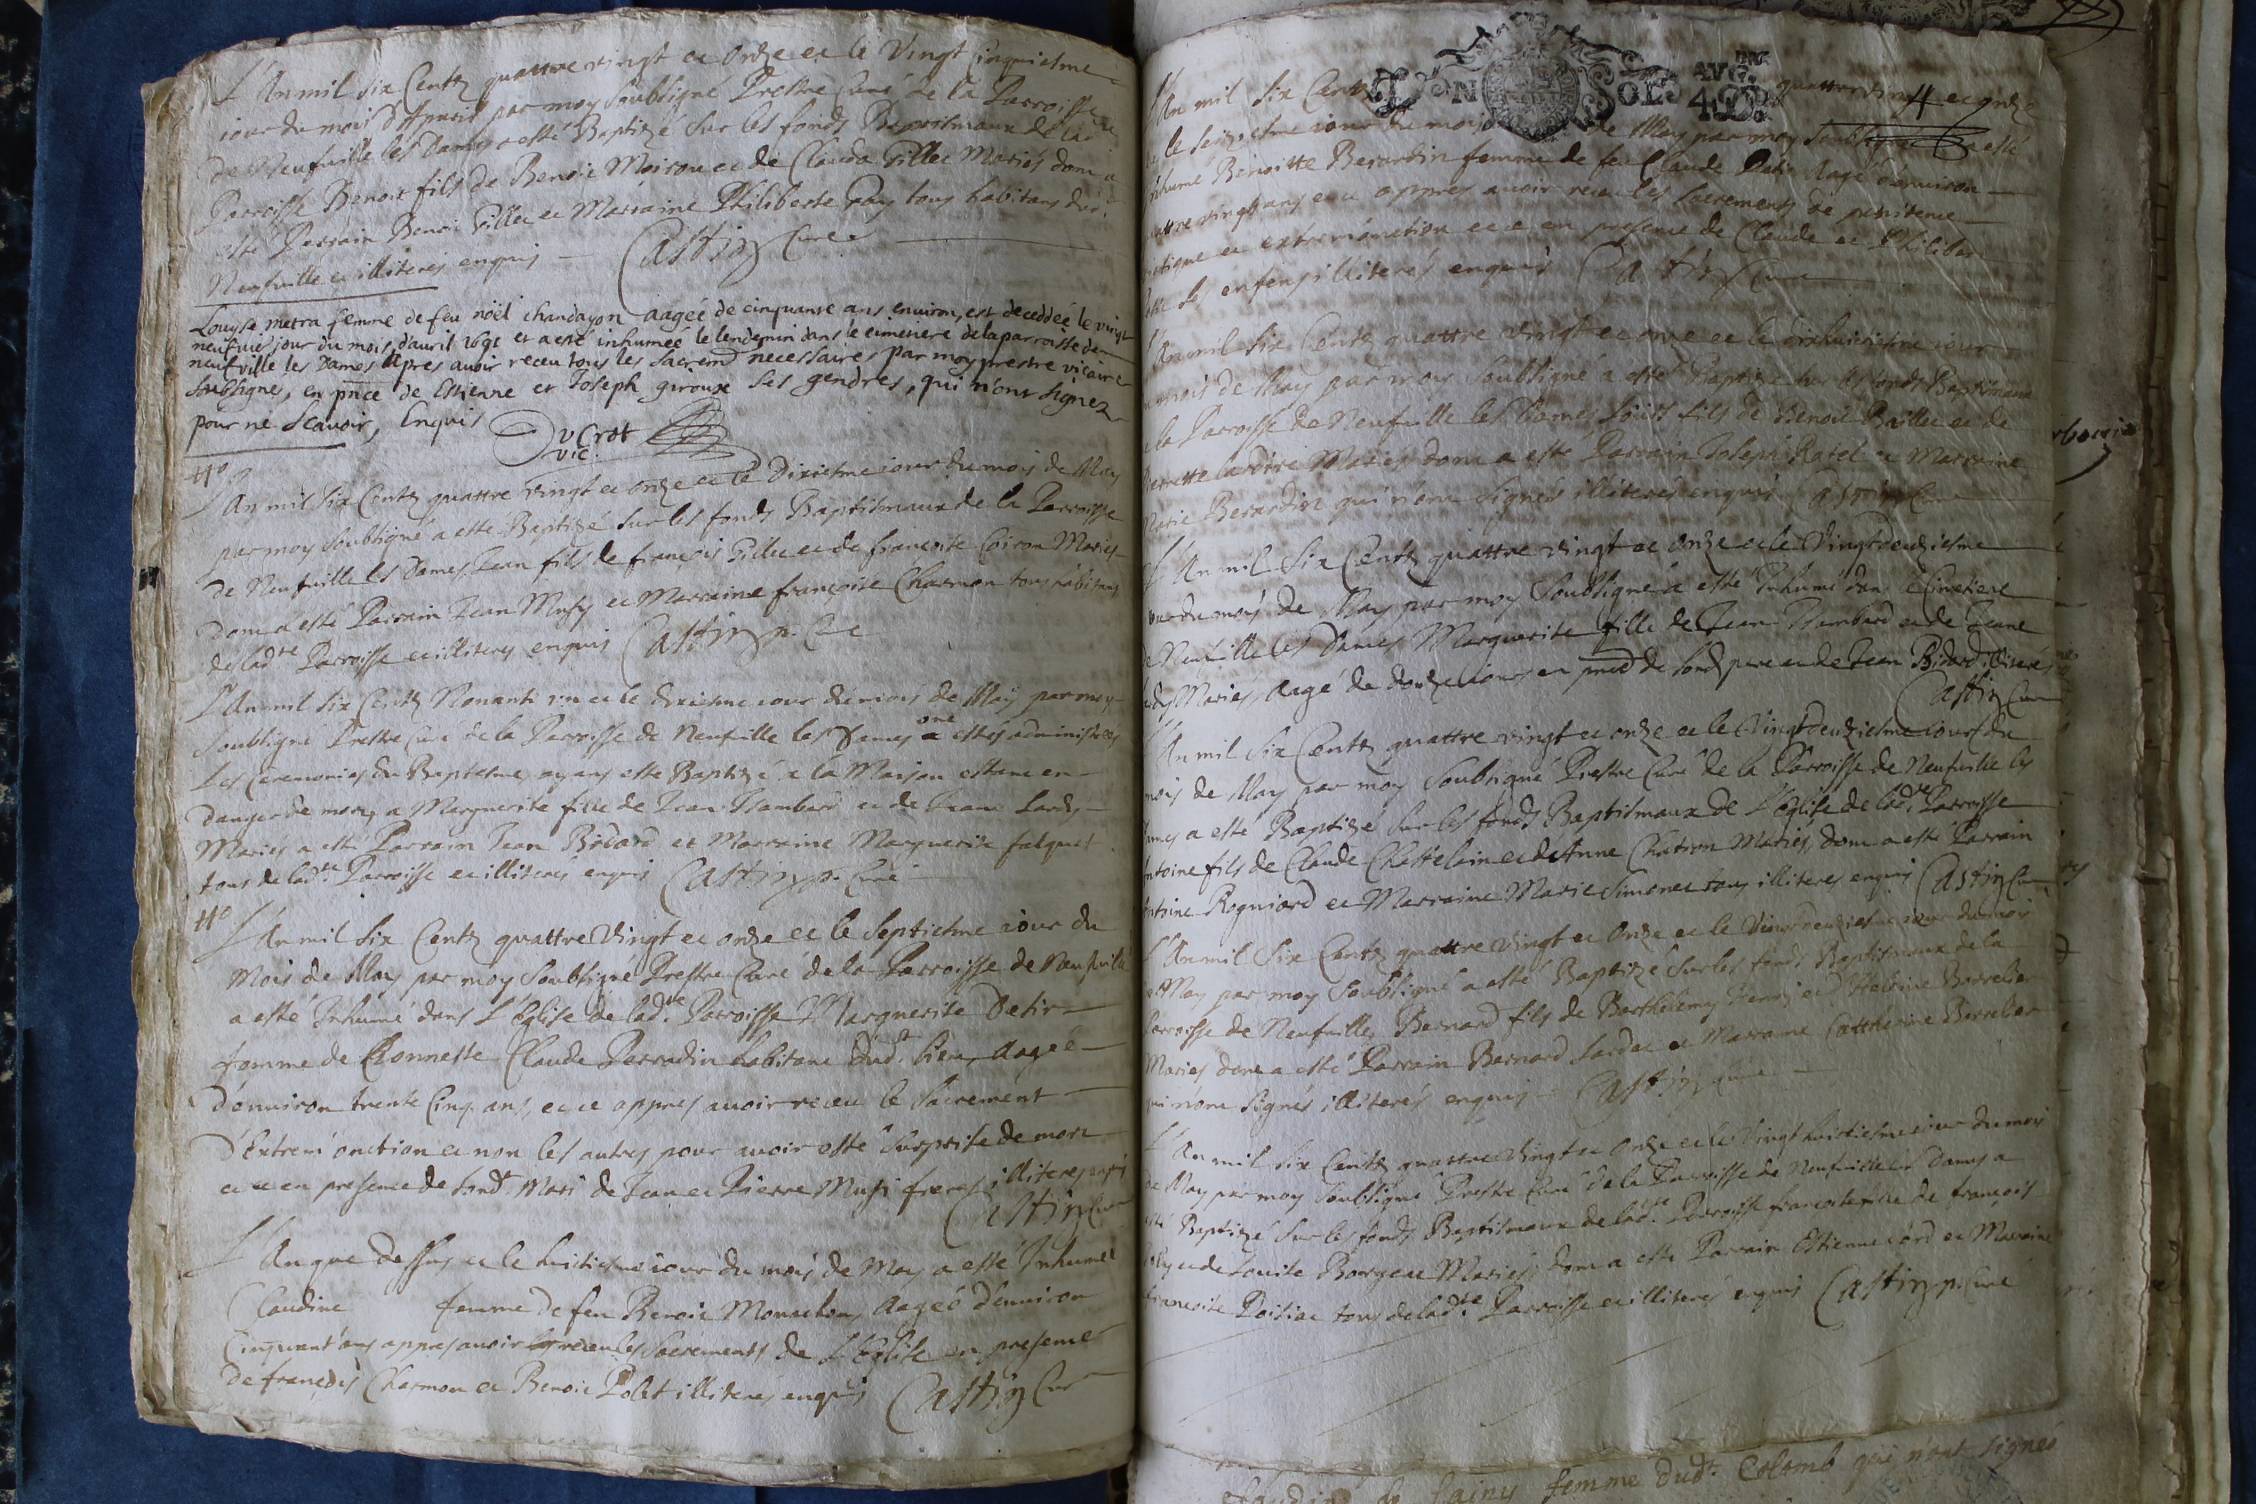 L'An mil six Centz quattre vingt et onze et le Vingt cinquiesme
iour du mois d'Apvril par moy soubsigné Prestre Curé de la Parroisse
de Neufville les Dames a esté Baptizé sur les fonds Baptismaux de lad.
Parroisse Benoit fils de Benoit Moiron et de Clauda Pillet Mariés dont a
esté Parrain Benoit Pillet et Marraine Philiberte tous habitans dud.
Neufville et illiterés enquis Castin Curé
Louyse metra femme de feu noël chandayon aagée de cinquante ans environ, est deceddée le vingt
neufvie. jour du mois d'auril 1691 et a esté inhumée le lendemin dans le cimetiere de la parroisse de
neufville les Dames apres avoir receu tous les sacremt necessaires par moy prestre vicaire
soubsigné, en pnce de Estienne et Joseph giroux ses gendres, qui n'ont signez
pour ne scavoir, Enquis Ducrot
vic.
L'An mil six Centz quattre vingt et onze et le Dixiesme iour du mois de May
par moy soubsigné a esté Baptizé sur les fonds Baptismaux de la Parroisse
de Neufville les Dames Jean fils de françois Pillet et de francoise Coiron Mariés
dont a esté Parrain Jean Musy et Marraine françoise Charnon tous habitans
de lad.te Parroisse et illiteres enquis Castin p. Curé
L'An mil six Centz Nonante un et le dixiesme iour du mois de May par moy
soubsigné Prestre Curé de la Parroisse de Neufville les Dames ont estés administrees
les Ceremonies du Baptesme ayant esté Baptizé a la Maison estant en
danger de mort, a Marguerite fille de Jean Jambard et de Jeane Lardy
Mariés a esté Parrain Jean Bidard et Marraine Marguerite falquet
tous de lad.te Parroisse et illiterés enquis Castin p. Curé
L'An mil six Centz quattre Vingt et onze et le septiesme iour du
Mois de May par moy soubsigné Prestre Curé de la Parroisse de Neufville
a esté Inhumé dans L'Eglise de lad.te Parroisse Marguerite Detir
femme de Honneste Claude Perradin habitant dud.t lieu, Aageé
d'environ trente Cinq ans, et ce appres avoir receu le Sacrement
d'Extrem'onction et non les autres pour avoir esté surprise de mort
et ce en presence de sond.t Mari de Jean et Pierre Musi freres illiteres enquis
Castin Curé
L'An que dessus et le huictiesme iour du mois de May a esté Inhumée
Claudine femme de feu Benoit Monachon, Aageé d'environ
Cinquant'ans appres avoir receu les Sacrements de L'Eglise en presence
de françois Charnon et Benoit Polet illiterés enquis Castin Curé
L'An mil six Centz quattre vingt et onze
et le seiziesme iour du mois de May par moy soubsigné a esté
inhumé Benoitte Berardin femme de feu Claude Detir Aagé d'environ
quattre vingt ans et ce appres avoir receu les sacrements de penitence
viatique et extrem'onction et ce en presence de Claude et Philiber
ses enfens illiterés enquis Castin Curé
L'An mil six Centz quattre vingt et onze et le dixhuictiesme iour
du mois de May par moy soubsigné a esté Baptizé sur les fonds Baptismaux
de la Parroisse de Neufville les Dames fils de Benoit Baillet et de
Perrette Mariés dont a esté Parrain Joseph Ratel et Marraine
Marie Berardin qui n'ont signés illiterés enquis Castin Curé
L'An mil six Centz quattre vingt et onze et le Vingtdeuziesme
iour du mois de May par moy soubsigné a esté Inhumé dans le Cimetiere
de Neufville les Dames Marguerite fille de Jean Jambard et de Jeane
Lardy Mariés, Aagé de douze iours en pnce de sond. pere et de Jean Bidard illiterés
Castin Curé
L'An mil six Centz quattre vingt et onze et le Vingtdeuziesme iour du
mois de May par moy soubsigné Prestre Curé de la Parroisse de Neufville les
Dames a esté Baptizé sur les fonds Baptismaux de L'Eglise de lad.te Parroisse
Antoine fils de Claude Chastelain et d'Anne Chatron Mariés, dont a esté Parrain
Antoine Rogniard et Marraine Marie Simonet tous illiteres enquis Castin Curé
L'An mil six Centz quattre vingt et onze et le Vingtdeuziesme iour du mois
de May par moy soubsigné a esté Baptizé sur les fonds Baptismaux de la
Parroisse de Neufville, Bernard fils de Barthelemy et d'Helaine Borrelier
Mariés dont a esté Parrain Bernard Sardet et Marraine Cattherine Berrelier
qui n'ont signés illiterés enquis Castin Curé
L'An mil six Centz quattre vingt et onze et le Vingt huictiesme iour du mois
de May par moy soubsigné Prestre Curé de la Parroisse de Neufville les Dames a
esté Baptizé sur les fonds Baptismaux de lad.te Parroisse francoise fille de françois
et de Louise Borgeat Mariés, dont a esté Parrain Estienne et Marraine
francoise Poisiat tous de lad.te Parroisse et illiterés enquis Castin p. Curé
femme dud.t Colomb qui n'ont signés